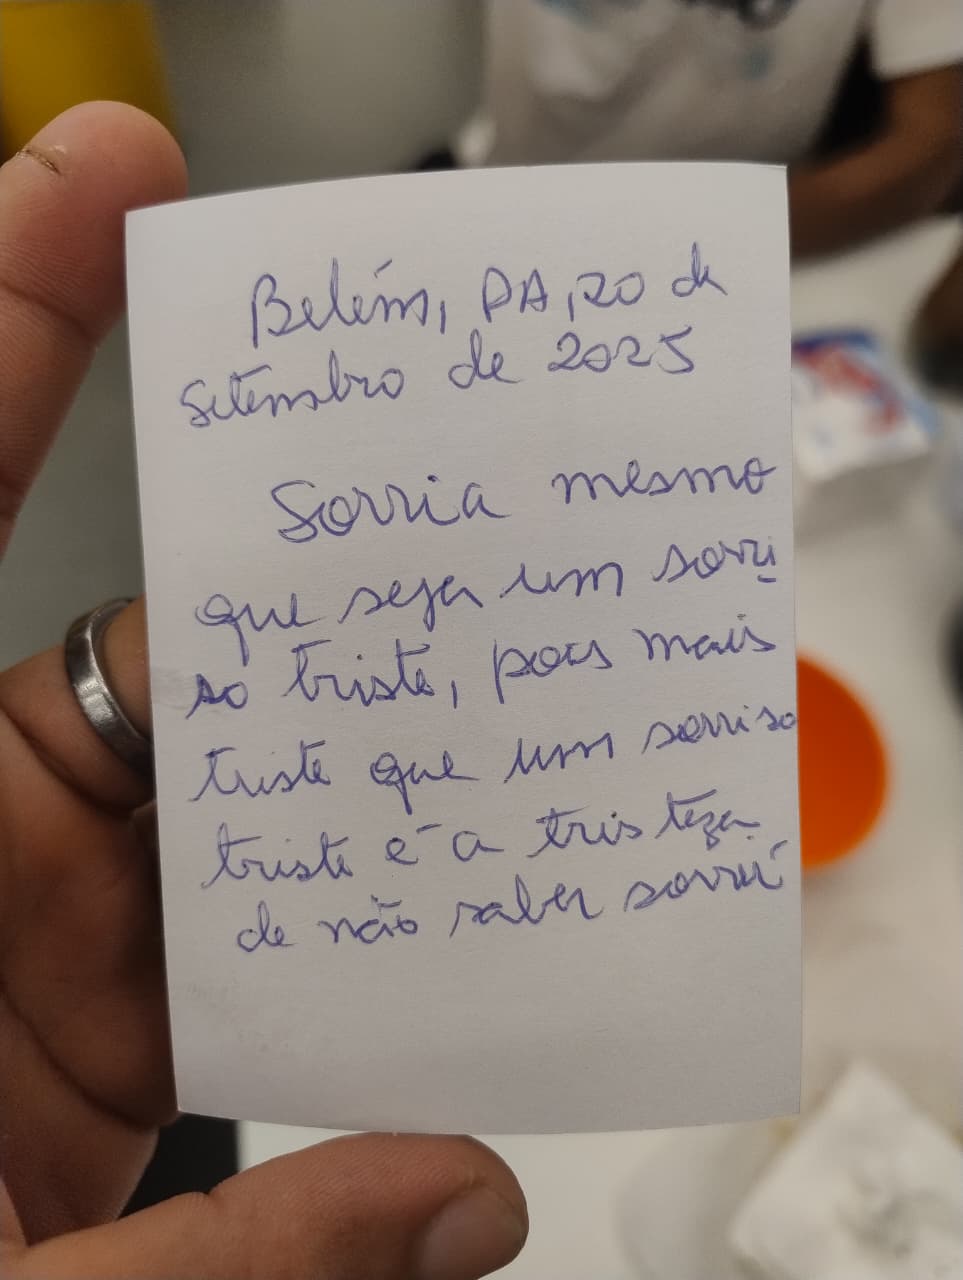 Belém, PA, 20 de
setembro de 2025
Sorria mesmo
que seja um sorri
so triste, pois mais
triste que um sorriso
triste é a tristeza
de não saber sorrir